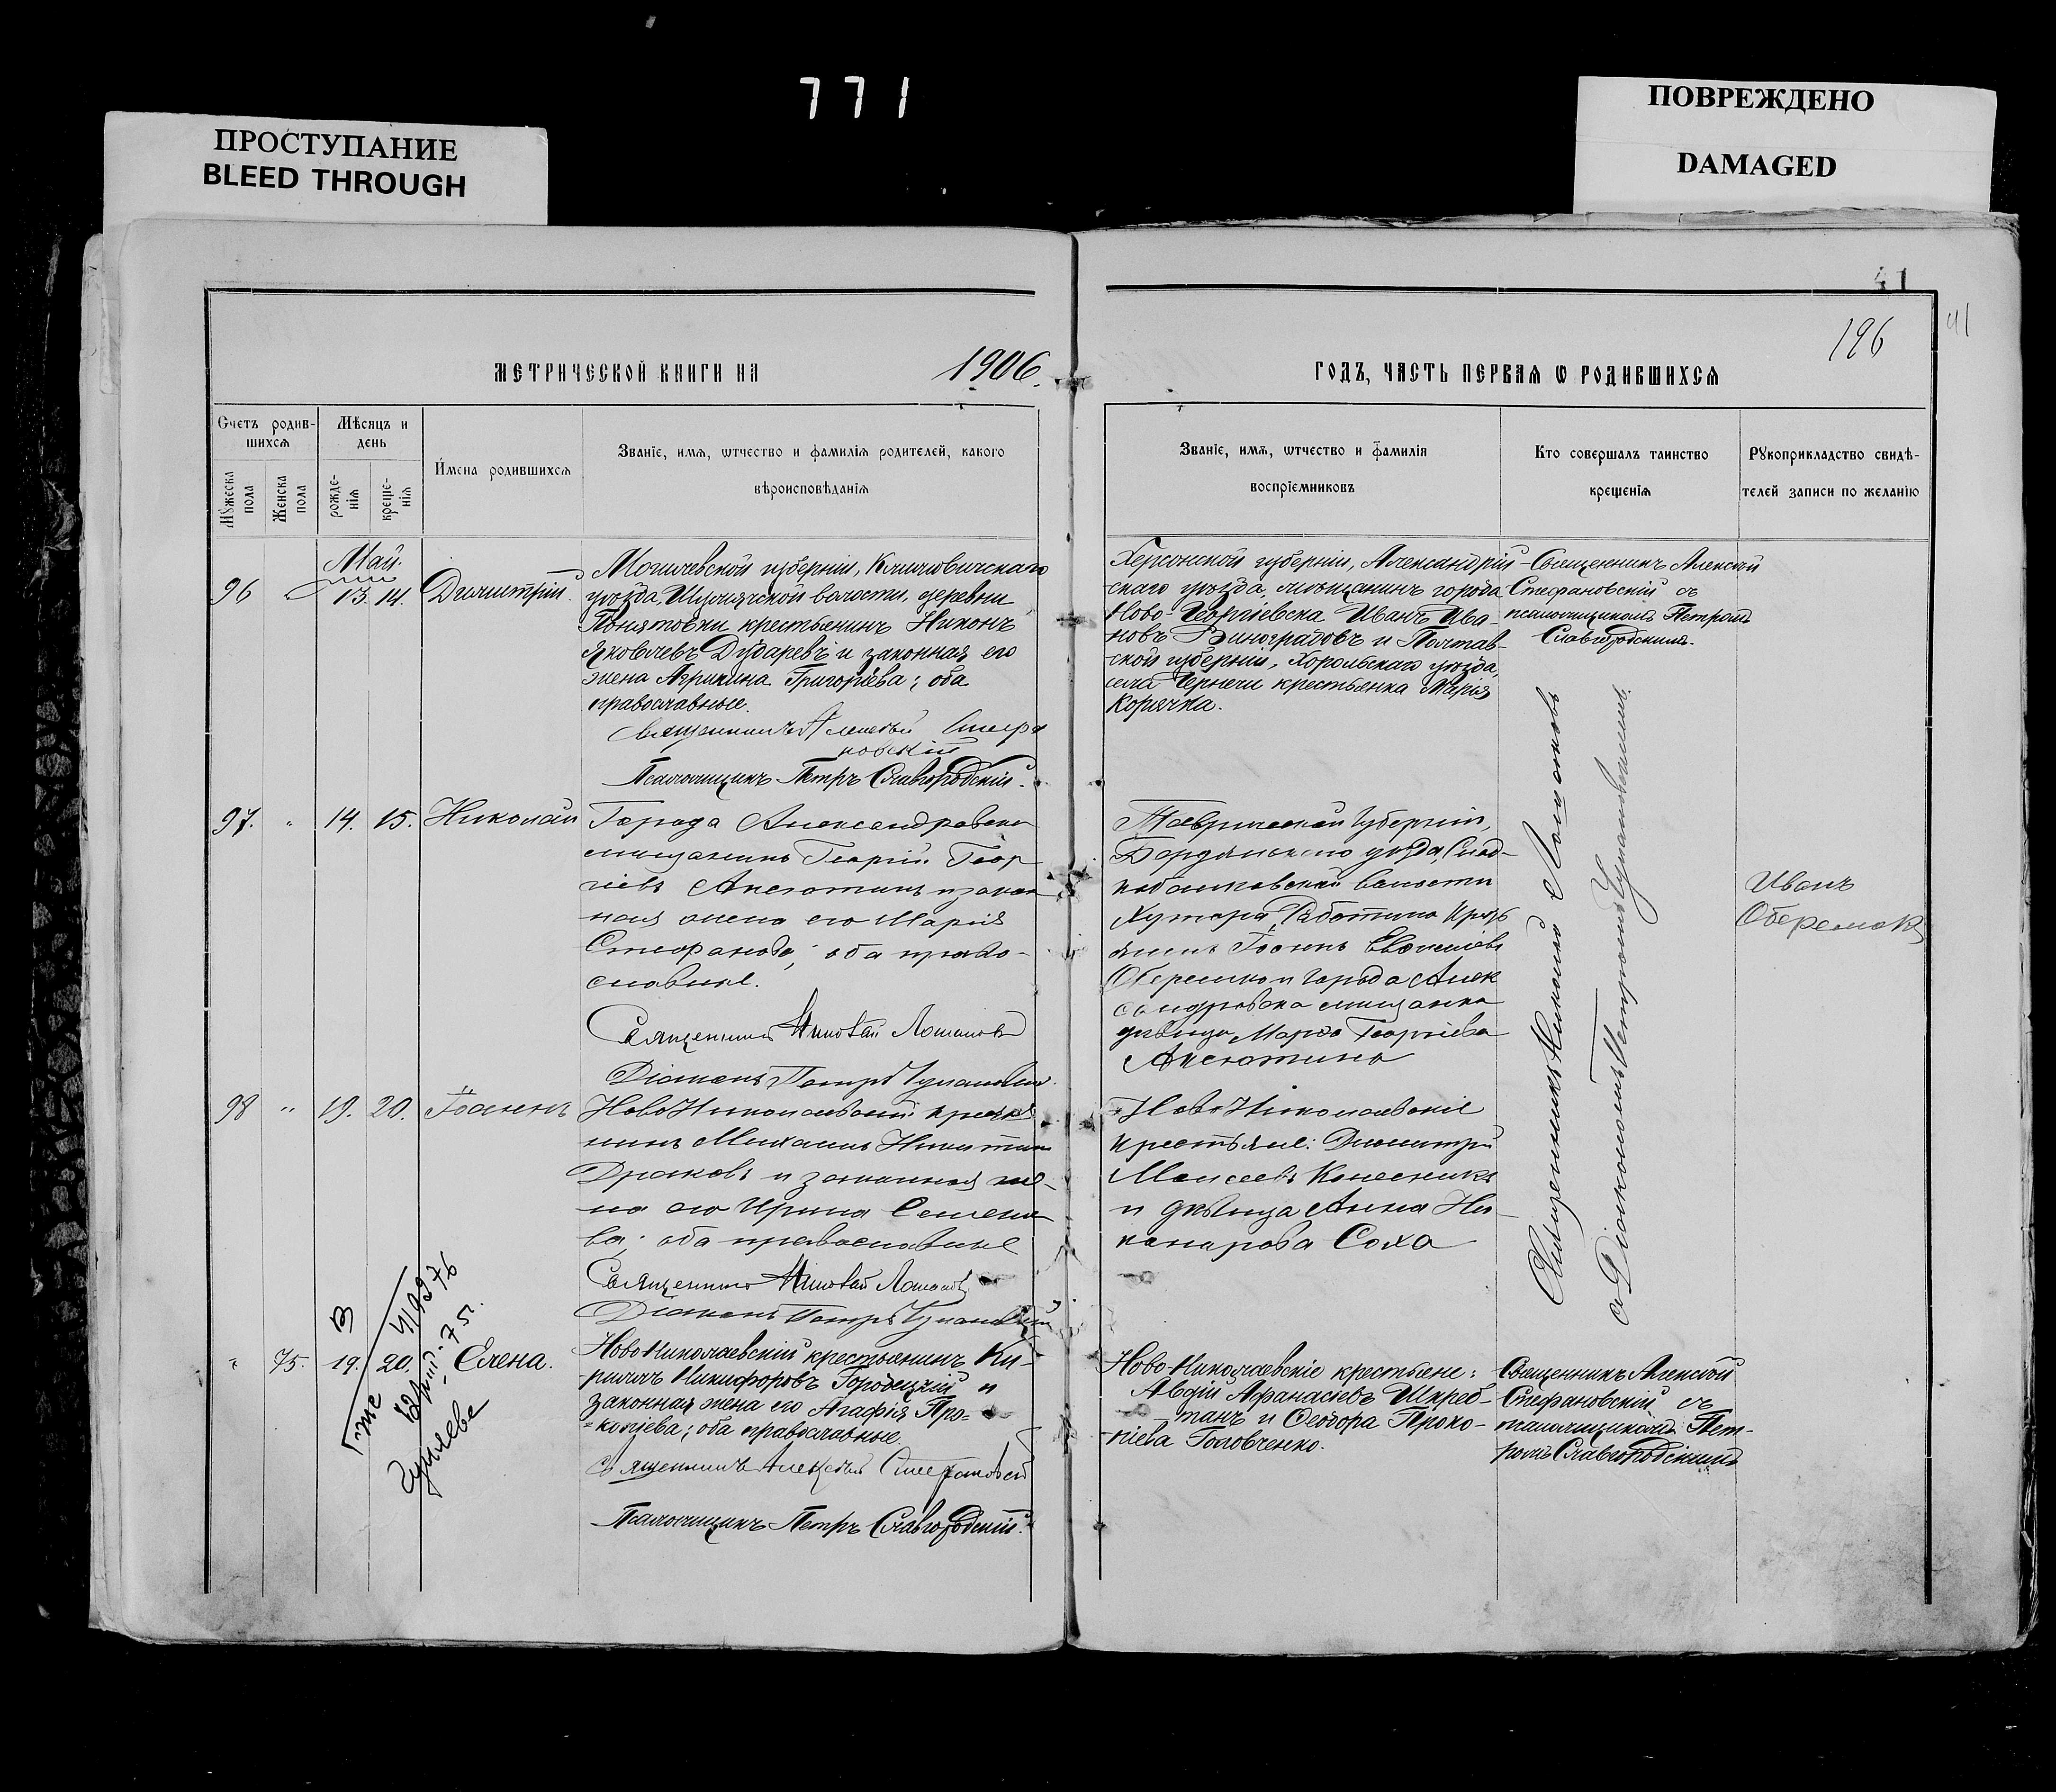 771
ПРОСТУПАНИЕ
BLEED THROUGH
ПОВРЕЖДЕНО
DAMAGED
41
41
196
МЕТРИЧЕСКОЙ КНИГИ НА
1906.
ГОДЪ, ЧАСТЬ ПЕРВАЯ Ѡ РОДИВШИХСЯ
Счетъ родив-
шихсѧ
Мѣсяцъ и
день
Мꙋжеска
пола
Женска
пола
рожде-
нїѧ
креще-
нїѧ
Имена родившихсѧ
Званїе, имѧ, ѡтчество и фамилїѧ родителей, какого
вѣроисповѣданїѧ
Званїе, имѧ, ѡтчество и фамилїѧ
воспрїемниковъ
Кто совершалъ таинство
крещенїѧ
Рꙋкоприкладство свидѣ-
телей записи по желанїю
Май.
96
13. 14.
Димитрій.
Могилевской губерніи, Климовичскаго
уѣзда, Шумячской волости, деревни
Понятовки крестьянинъ Никонъ
Яковлевъ Дударевъ и законная его
жена Агрипина Григоріева; оба
православные.
Священникъ Алексѣй Стефа
новскій
Псаломщикъ Петръ Славгородскій.
Херсонской губерніи, Александрій-
скаго уѣзда, мѣщанинъ города
Ново-Георгіевска Иванъ Ива-
новъ Виноградовъ и Полтав-
ской губерніи, Хорольскаго уѣзда,
села Чернечи крестьянка Марія
Корячка.
Священникъ Алексѣй
Стефановскій съ
псаломщикомъ Петромъ
Славгородскимъ.
97.
"
14.
15.
Николай
Города Александровска
мѣщанинъ Георгій Геор
гіевъ Аксютинъ и закон
ная жена его Марія
Стефанова; оба право-
славные.
Священникъ Николай
Діаконъ Петръ
Таврической губерніи,
Бердянскаго уѣзда,
волости
Хутора
Іоаннъ
города Алек
сандровска мѣщанка
дѣвица Марѳа Георгіева
Аксютина
Священникъ Николай
съ Діакономъ Петромъ
Иванъ
Оберемокъ
98
"
19.
20.
Іоаннъ
НовоНиколаевскій крестья
нинъ Михаилъ Никитинъ
и законная же-
на его Ирина Семено
ва; оба православные
Священникъ Николай
Діаконъ Петръ
НовоНиколаевскіе
крестьяне: Димитрій
Моисеевъ Колесникъ
и дѣвица Анна Ни-
канорова Соха
"
75.
19.
20.
Елена.
Ново-Николаевскій крестьянинъ Ки-
риллъ Никифоровъ Городецкій и
законная жена его Агафія Про-
=копіева; оба православные.
Священникъ Алексѣй Стефановскій
Псаломщикъ Петръ Славгородскій.
Ново-Николаевскіе крестьяне:
Авдій Афанасіевъ Шкреб-
танъ и Ѳеодора Проко-
піева Головченко.
Священникъ Алексѣй
Стефановскій съ
псаломщикомъ Пет-
ромъ Славгородскимъ